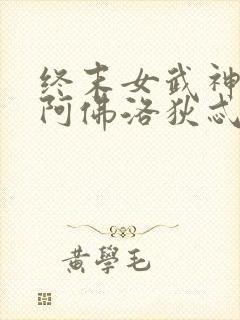 终末女武神
阿佛洛狄忒
黄學毛